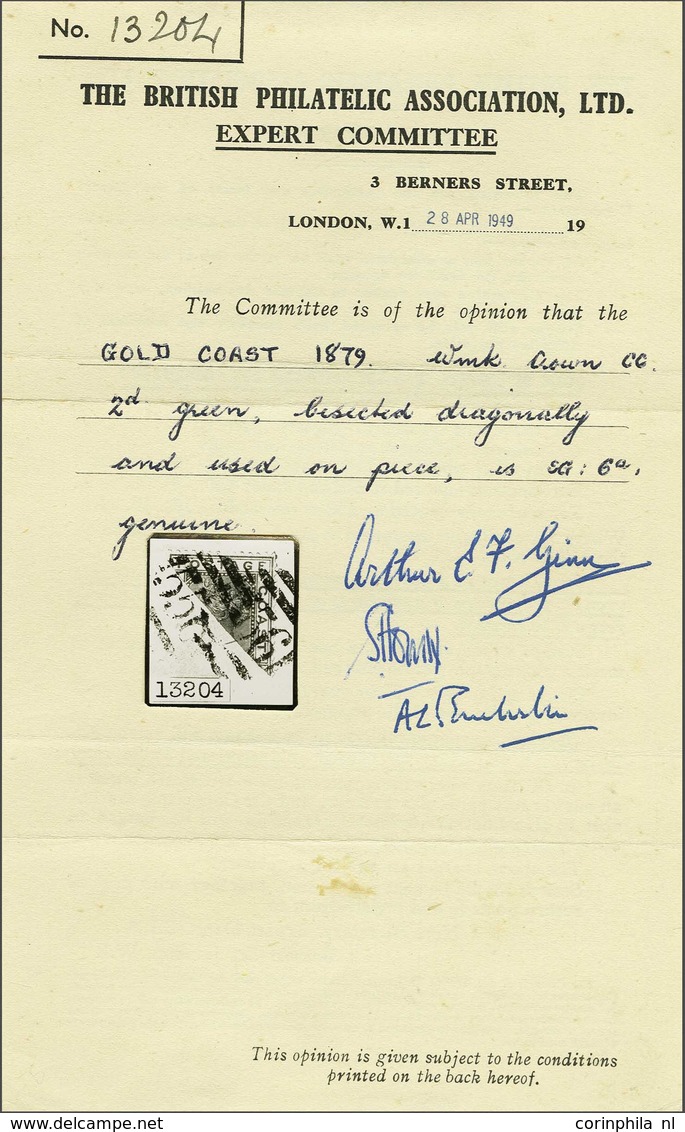 No. 13204
THE BRITISH PHILATELIC ASSOCIATION, LTD.
EXPERT COMMITTEE
3 BERNERS STREET,
LONDON, W.1 28 APR 1949 19
The Committee is of the opinion that the
GOLD COAST 1879. Wmk Crown CC.
2d green, bisected diagonally
and used on piece, is SG: 6a,
genuine.
Arthur E. F. Ginn
COAST
13204
This opinion is given subject to the conditions
printed on the back hereof.
corinphila nl